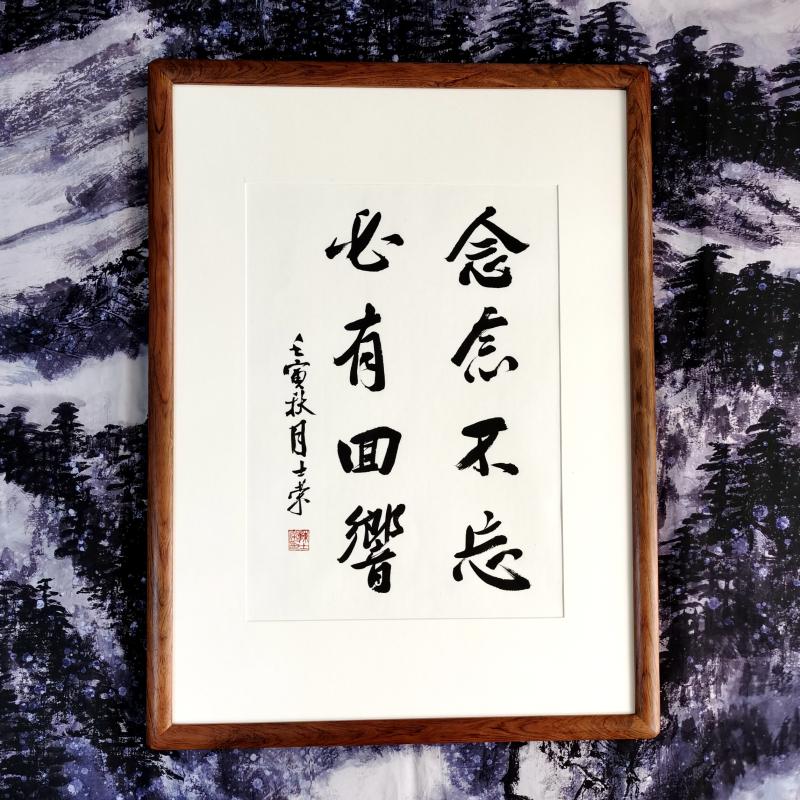 念念不忘
必有回響
壬寅秋月士榮